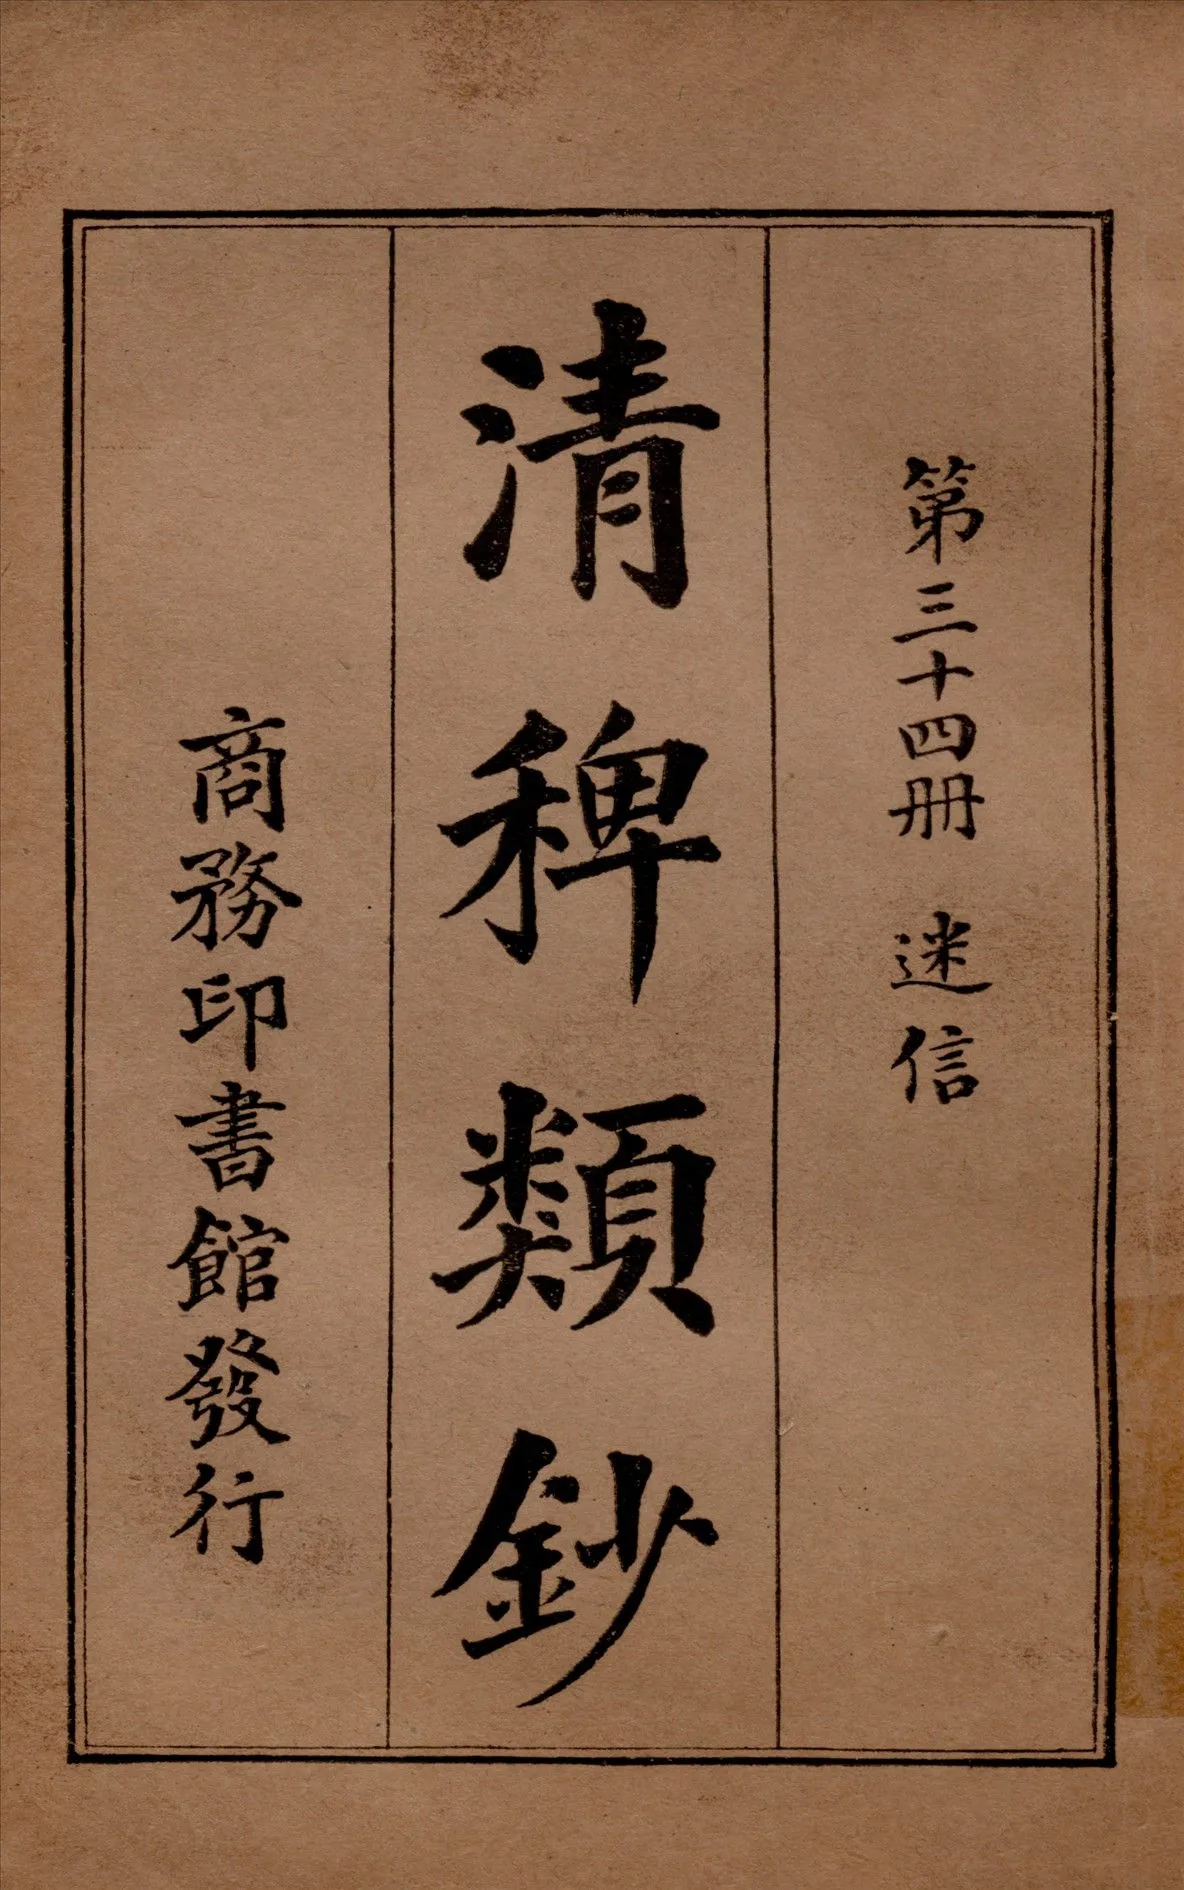 第三十四册　迷信
清稗類鈔
商務印書館發行